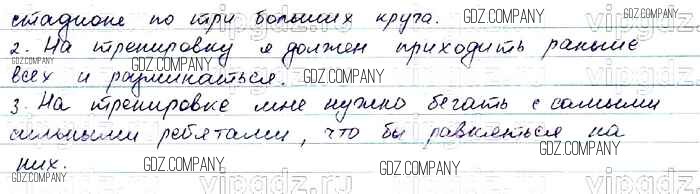 стадионе по три больших круга.
2. На тренировку я должен приходить раньше
всех и разминаться.
3. На тренировке мне нужно бегать с самыми
сильными ребятами, что бы равняться на
них.
GDZ.COMPANY
GDZ.COMPANY
GDZ.COMPANY
GDZ.COMPANY
GDZ.COMPANY
GDZ.COMPANY
GDZ.COMPANY
GDZ.COMPANY
GDZ.COMPANY
GDZ.COMPANY
GDZ.COMPANY
GDZ.COMPANY
vipgdz.ru